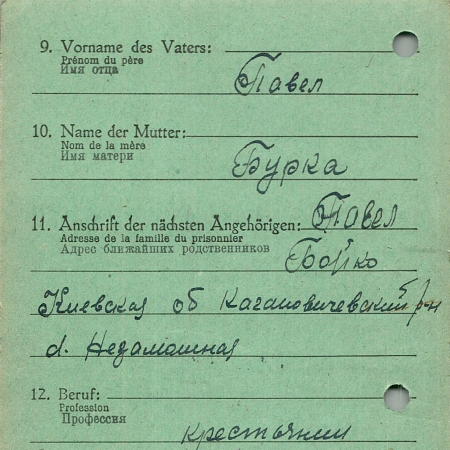 9. Vorname des Vaters:
Prénom du père
Имя отца
Павел
10. Name der Mutter:
Nom de la mère
Имя матери
Бурка
11. Anschrift der nächsten Angehörigen: Павел
Adresse de la famille du prisonnier
Адрес ближайших родственников
Бойко
Киевская об Кагановичевский р-н
d. Недамашная
12. Beruf:
Profession
Профессия
крестьянин